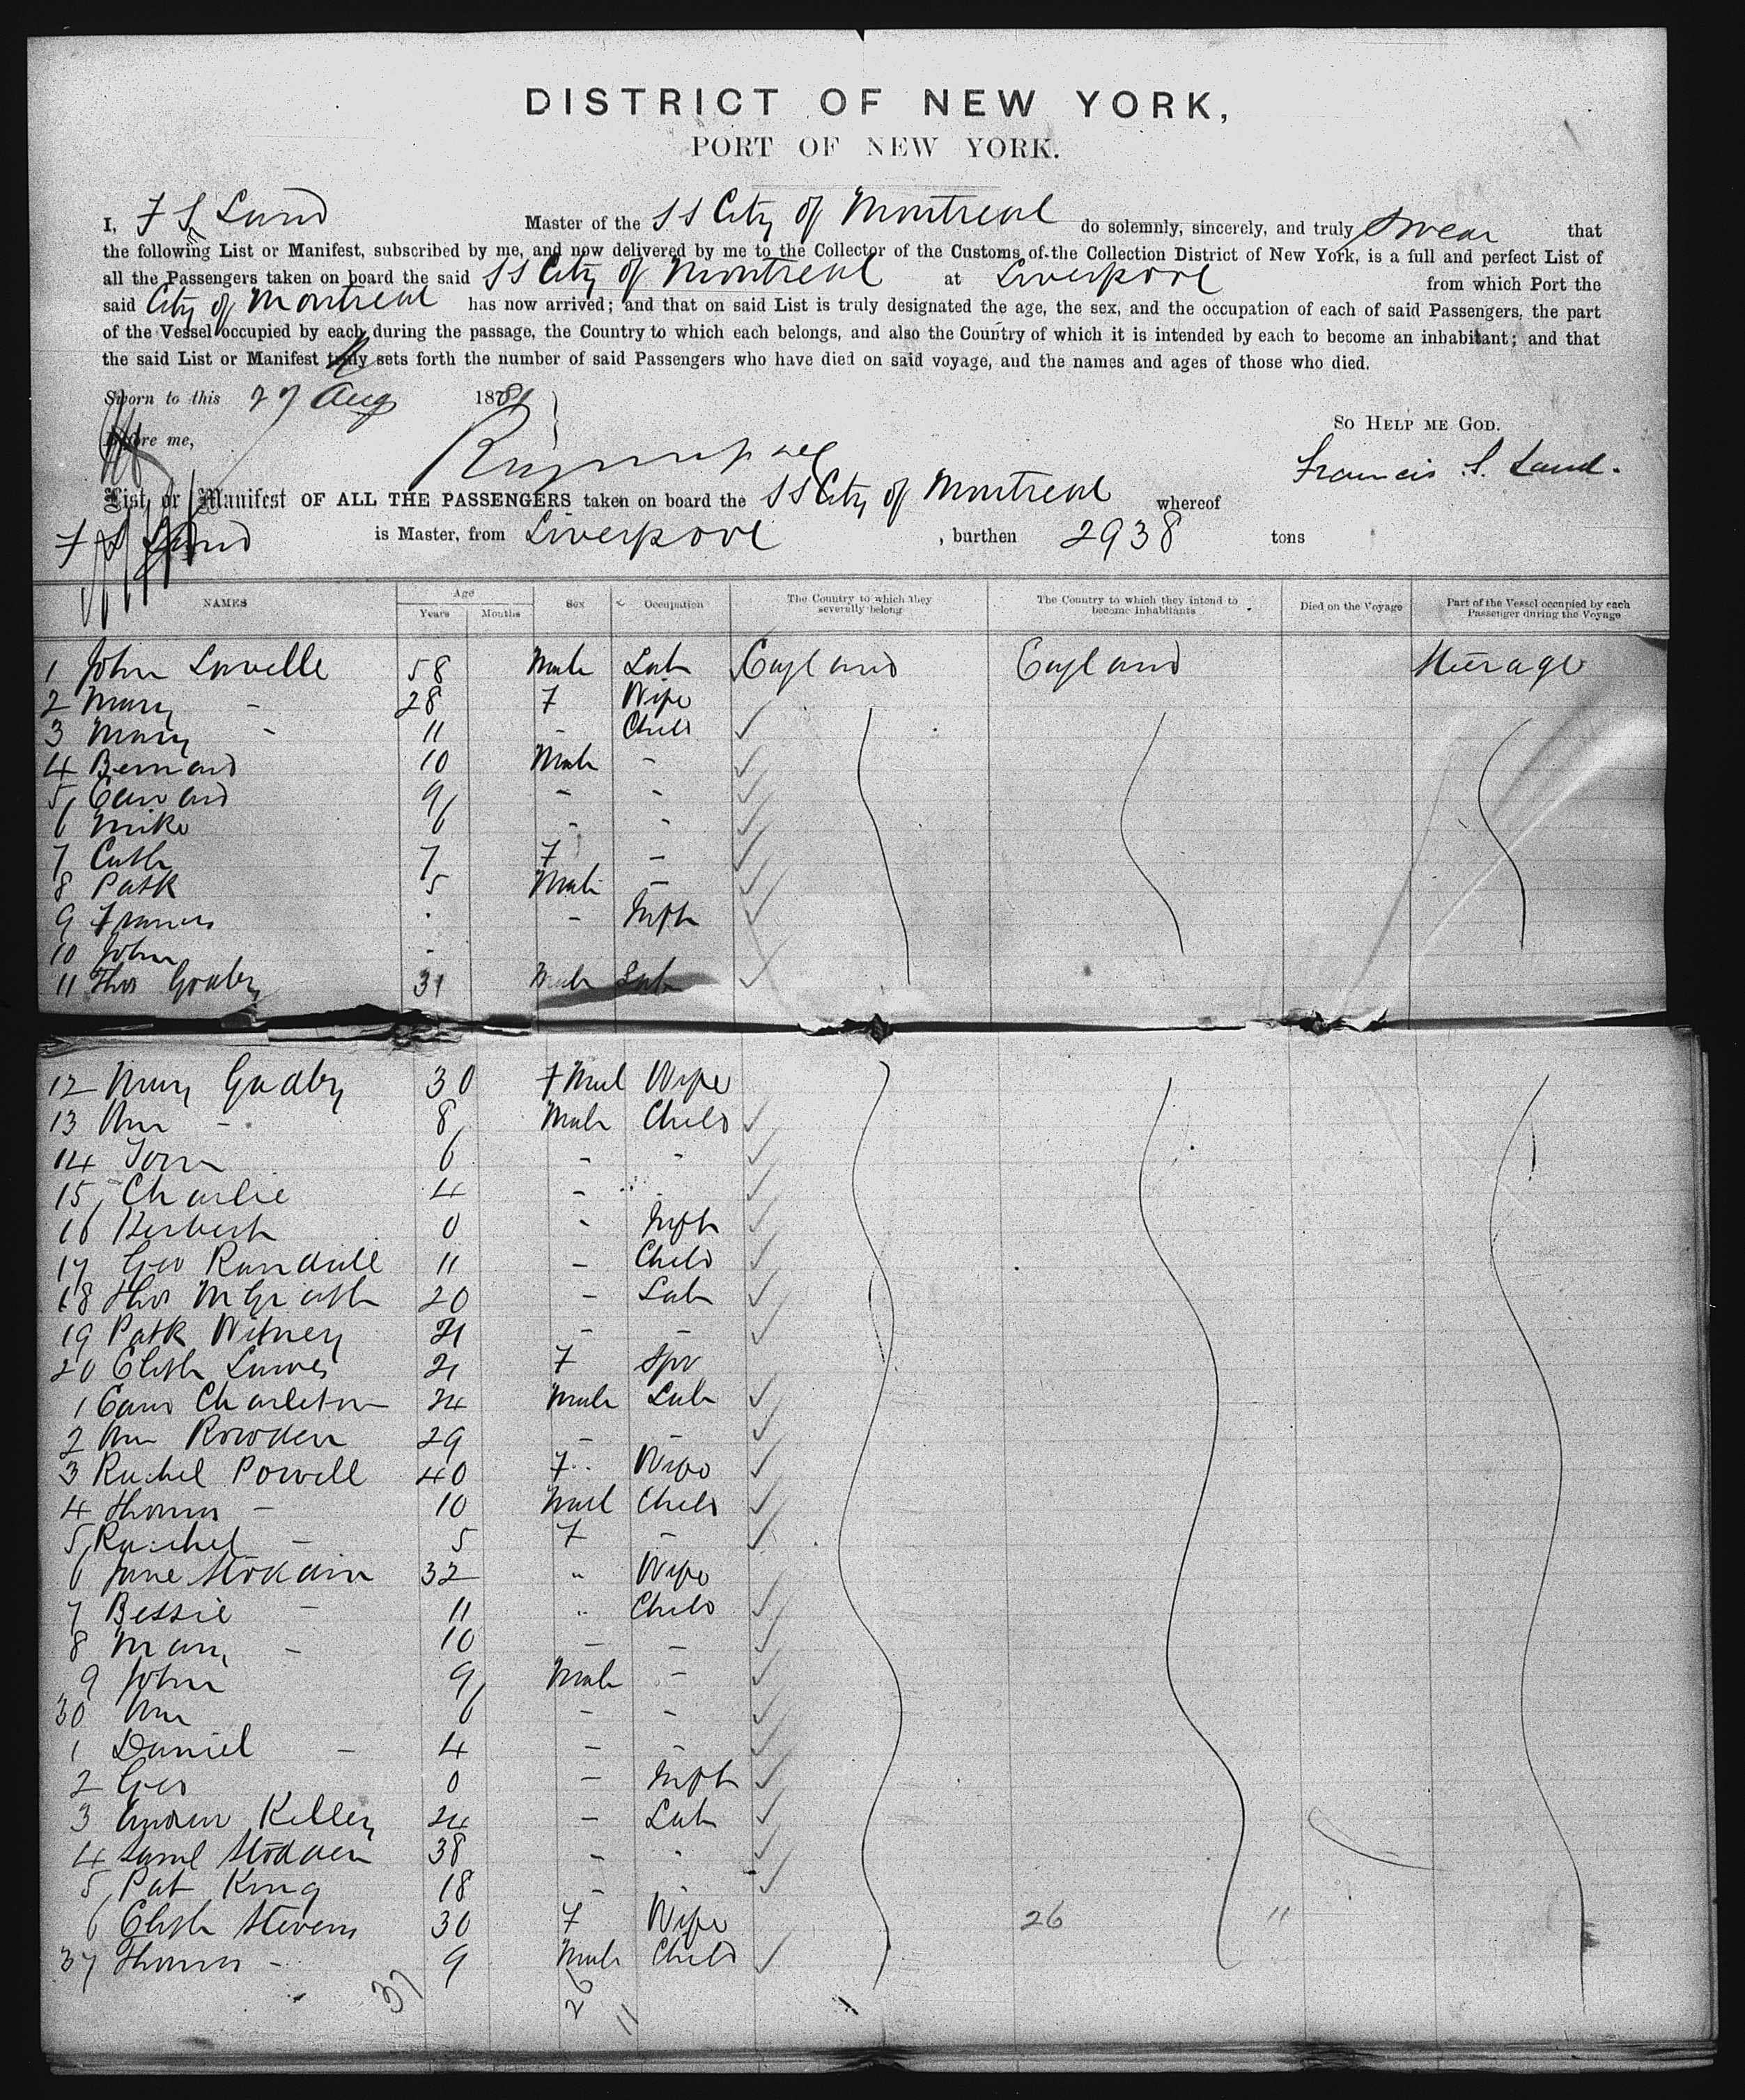 DISTRICT OF NEW YORK,
PORT OF NEW YORK.
I, F S Land Master of the SS City of Montreal do solemnly, sincerely, and truly swear that
the following List or Manifest, subscribed by me, and now delivered by me to the Collector of the Customs of the Collection District of New York, is a full and perfect List of
all the Passengers taken on board the said SS City of Montreal at Liverpool from which Port the
said City of Montreal has now arrived; and that on said List is truly designated the age, the sex, and the occupation of each of said Passengers, the part
of the Vessel occupied by each during the passage, the Country to which each belongs, and also the Country of which it is intended by each to become an inhabitant; and that
the said List or Manifest truly sets forth the number of said Passengers who have died on said voyage, and the names and ages of those who died.
Sworn to this 27 Aug 1881
So Help me God.
Before me,
Francis S. Land.
List or Manifest OF ALL THE PASSENGERS taken on board the SS City of Montreal whereof
F S Land is Master, from Liverpool, burthen 2938 tons
NAMES Age Years Months Sex Occupation The Country to which they severally belong The Country to which they intend to become Inhabitants Died on the Voyage Part of the Vessel occupied by each Passenger during the Voyage
1 John Lavelle 58 Male Lab England England Steerage
2 Mary - 28 F Wife
3 Mary - 11 - Child
4 Bernard 10 Male -
5 Edward 9 - -
6 Mike 6 - -
7 Cath 7 F -
8 Patk 5 Male -
9 Francis - Inft
10 John -
11 Thos Goadby 31 Male Lab
12 Mary Goadby 30 F Wife
13 Wm - 8 Male Child
14 Tom 6 - -
15 Charlie 4 - -
16 Herbert 0 - Inft
17 Geo Randall 11 - Child
18 Thos McGrath 20 - Lab
19 Patk Witney 21 - -
20 Elizth 21 F Spr
1 Edwd Charleton 24 Male Lab
2 Wm Rowden 29 - -
3 Rachel Powell 40 F Wife
4 Thomas - 10 Mael Child
5 Rachel - 5 F -
6 Jane Stoddin 32 " Wife
7 Bessie - 11 " Child
8 Mary - 10 - -
9 John 9 Male -
30 Wm 6 - -
1 Daniel - 4 - -
2 Geo 0 - Inft
3 Andrew Kelley 24 - Lab
4 Saml Stodden 38 - -
5 Pat King 18 -
6 Elizth Stevens 30 F Wife 26 11
37 Thomas - 9 Male Child
37 26 11